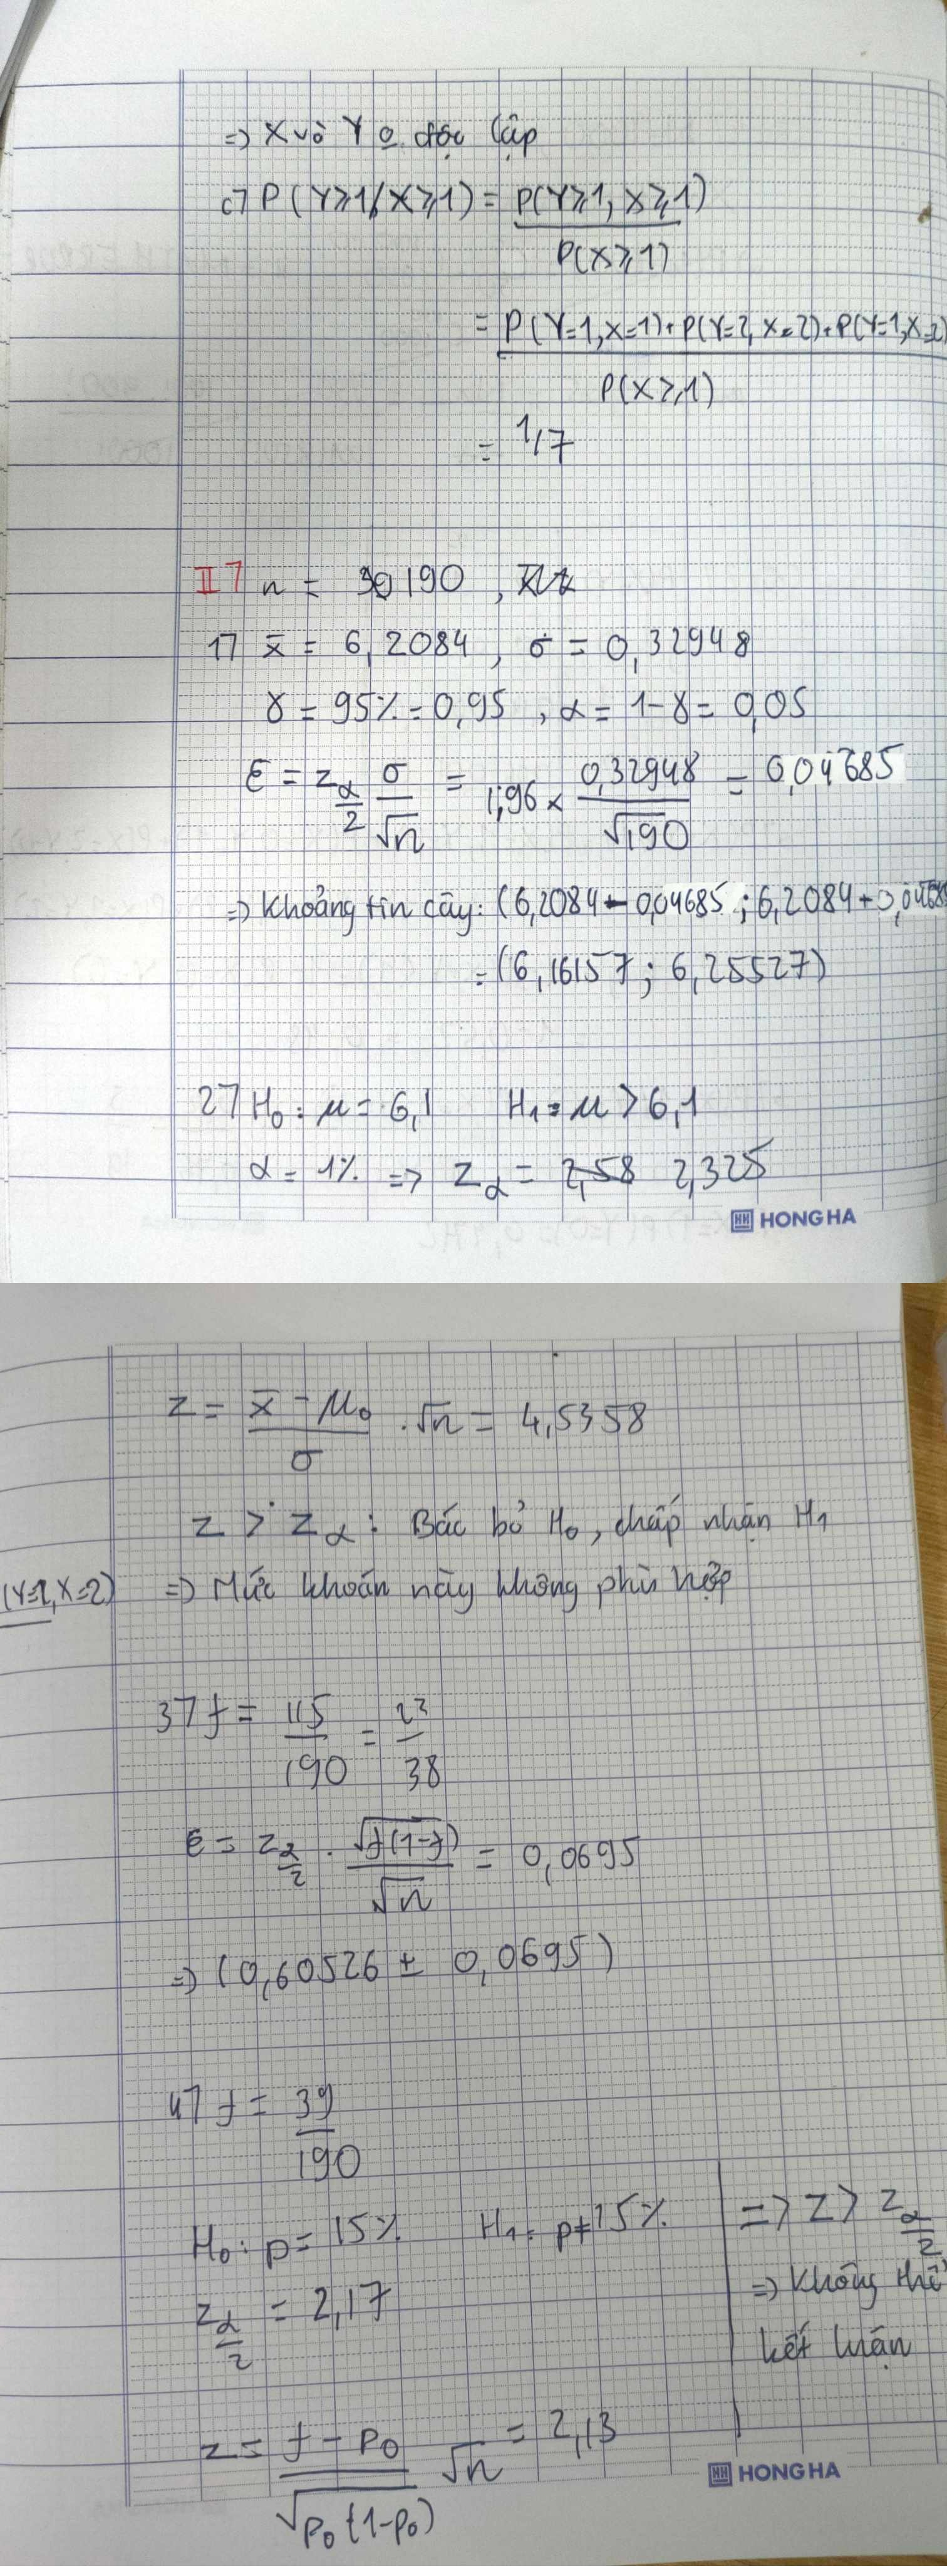 => X và Y ko độc lập
c) P(Y≥1/X≥1) = P(Y≥1, X≥1)
P(X≥1)
= P(Y=1,X=1)+P(Y=2,X=2)+P(Y=1,X=2)
P(X≥1)
= 1/7
II) n = 190
1) x̄ = 6,2084, σ = 0,32948
γ = 95% = 0,95, α = 1-γ = 0,05
ε = z α/2 σ/√n = 1,96 × 0,32948/√190 = 0,04685
=> Khoảng tin cậy: (6,2084 - 0,04685; 6,2084 + 0,04685
= (6,16157; 6,25527)
2) H₀: μ = 6,1 H₁: μ > 6,1
α = 1% => zα = 2,58 2,325
HH HONG HA
z = x̄ - μ₀/σ . √n = 4,5358
z > zα: Bác bỏ H₀, chấp nhận H₁
(Y=2,X=2) => Mức khoán này không phù hợp
3) f = 115/190 = 23/38
ε = z α/2 . √f(1-f)/√n = 0,0695
=> (0,60526 ± 0,0695)
4) f = 39/190
H₀: p = 15% H₁: p ≠ 15%
z α/2 = 2,17
z = f - p₀/√p₀(1-p₀) √n = 2,13
=> z > z α/2
=> Không thể
kết luận
HH HONG HA